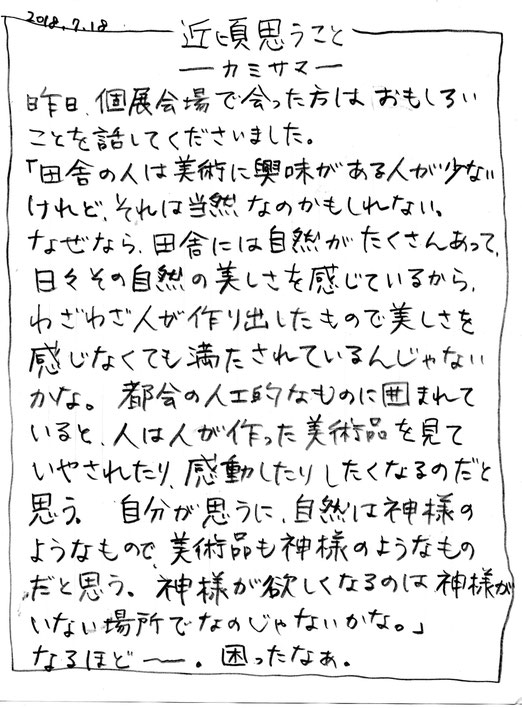 2018.7.18
近頃思うこと
—カミサマ—
昨日、個展会場で会った方は おもしろい
ことを話してくださいました。
「田舎の人は美術に興味がある人が少ない
けれど、それは当然なのかもしれない。
なぜなら、田舎には自然がたくさんあって、
日々その自然の美しさを感じているから、
わざわざ人が作り出したもので美しさを
感じなくても満たされているんじゃない
かな。 都会の人工的なものに囲まれて
いると、人は人が作った美術品を見て
いやされたり、感動したりしたくなるのだと
思う。 自分が思うに、自然は神様の
ようなもので、美術品も神様のようなもの
だと思う。神様が欲しくなるのは神様が
いない場所でなのじゃないかな。」
なるほど〜。困ったなぁ。